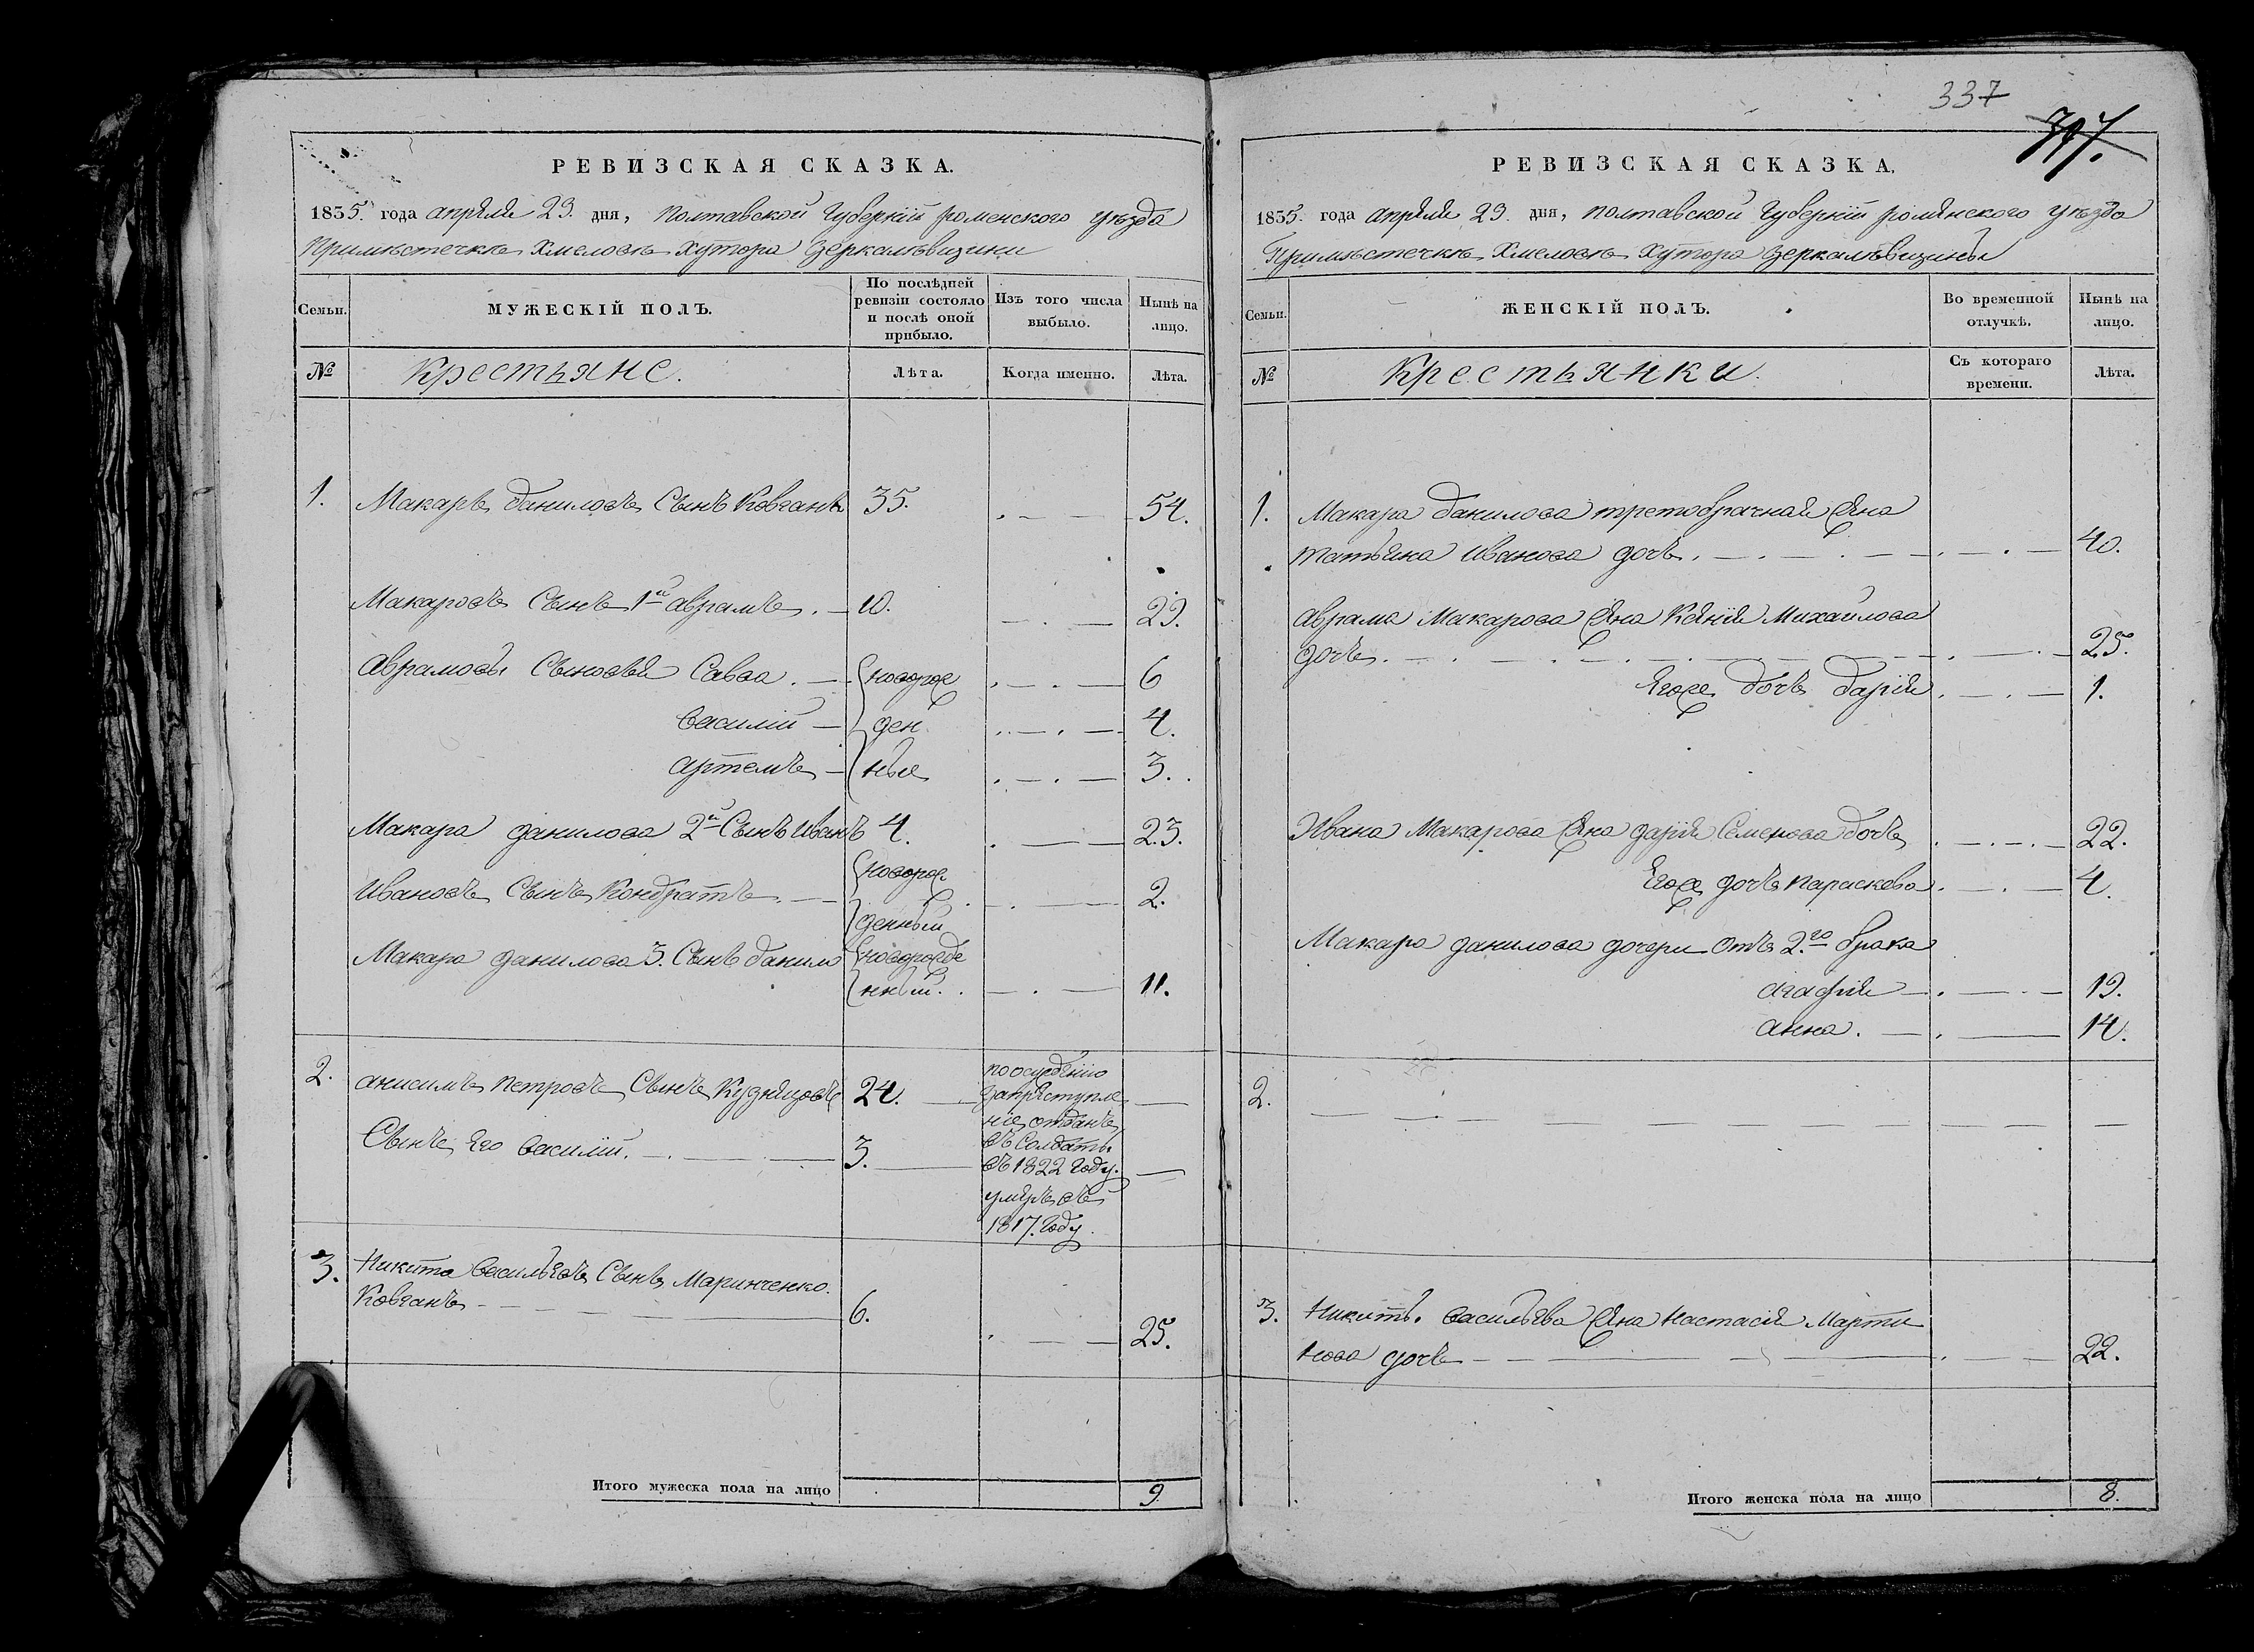 РЕВИЗСКАЯ СКАЗКА.
1835. года апреля 29. дня, полтавской Губернїи роменского уезда
Приместечке Хмелове хутора Зеркалевизини
Семьи.
МУЖЕСКІЙ ПОЛЪ.
По послѣдней ревизіи состояло и послѣ оной прибыло.
Изъ того числа выбыло.
Нынѣ на лицо.
№
Крестьяне.
Лѣта.
Когда именно.
Лѣта.
1. Макаръ даниловъ Сынъ Ковганъ 35. 54.
Макаровъ Сынъ 1й аврамъ. 10. 29.
аврамовы Сыновья Савва. новорож 6
василий ден 4.
артемъ ные 3.
Макара данилова 2й Сынъ иванъ 4. 23.
новорож
ивановъ Сынъ Кондратъ. 2.
денный
Макара данилова 3. Сынъ данило новорожде
нный. 11.
2. анисимъ петровъ Сынъ Кузнецовъ 24. поосуждению
запреступле
ніе отданъ
въ Солдаты
въ 1822 году.
Сынъ его василий. 3.
умеръ въ
1817. году.
3. Никита васильевъ Сынъ Маринченко.
Ковганъ 6. 25.
Итого мужеска пола на лицо 9.
337
РЕВИЗСКАЯ СКАЗКА.
1835. года апреля 29. дня, полтавской Губернїи роменского уезда
Приместечке Хмелове хутора Зеркалевизины
Семьи.
ЖЕНСКІЙ ПОЛЪ.
Во временной отлучкѣ.
Нынѣ на лицо.
№
Крестьянки.
Съ котораго времени.
Лѣта.
1. Макара данилова третобрачная жена
татьяна иванова дочь. 40.
аврама Макарова жена Ксения михайлова
дочь. 25.
Егоже дочь дария. 1.
Ивана Макарова жена дария Семенова дочь 22.
Егоже дочь параскева. 4.
Макара данилова дочери отъ 2.го брака
агафия 19.
анна. 14.
2.
3. Никиты васильева жена настасия Марти
нова дочь 22.
Итого женска пола на лицо 8.